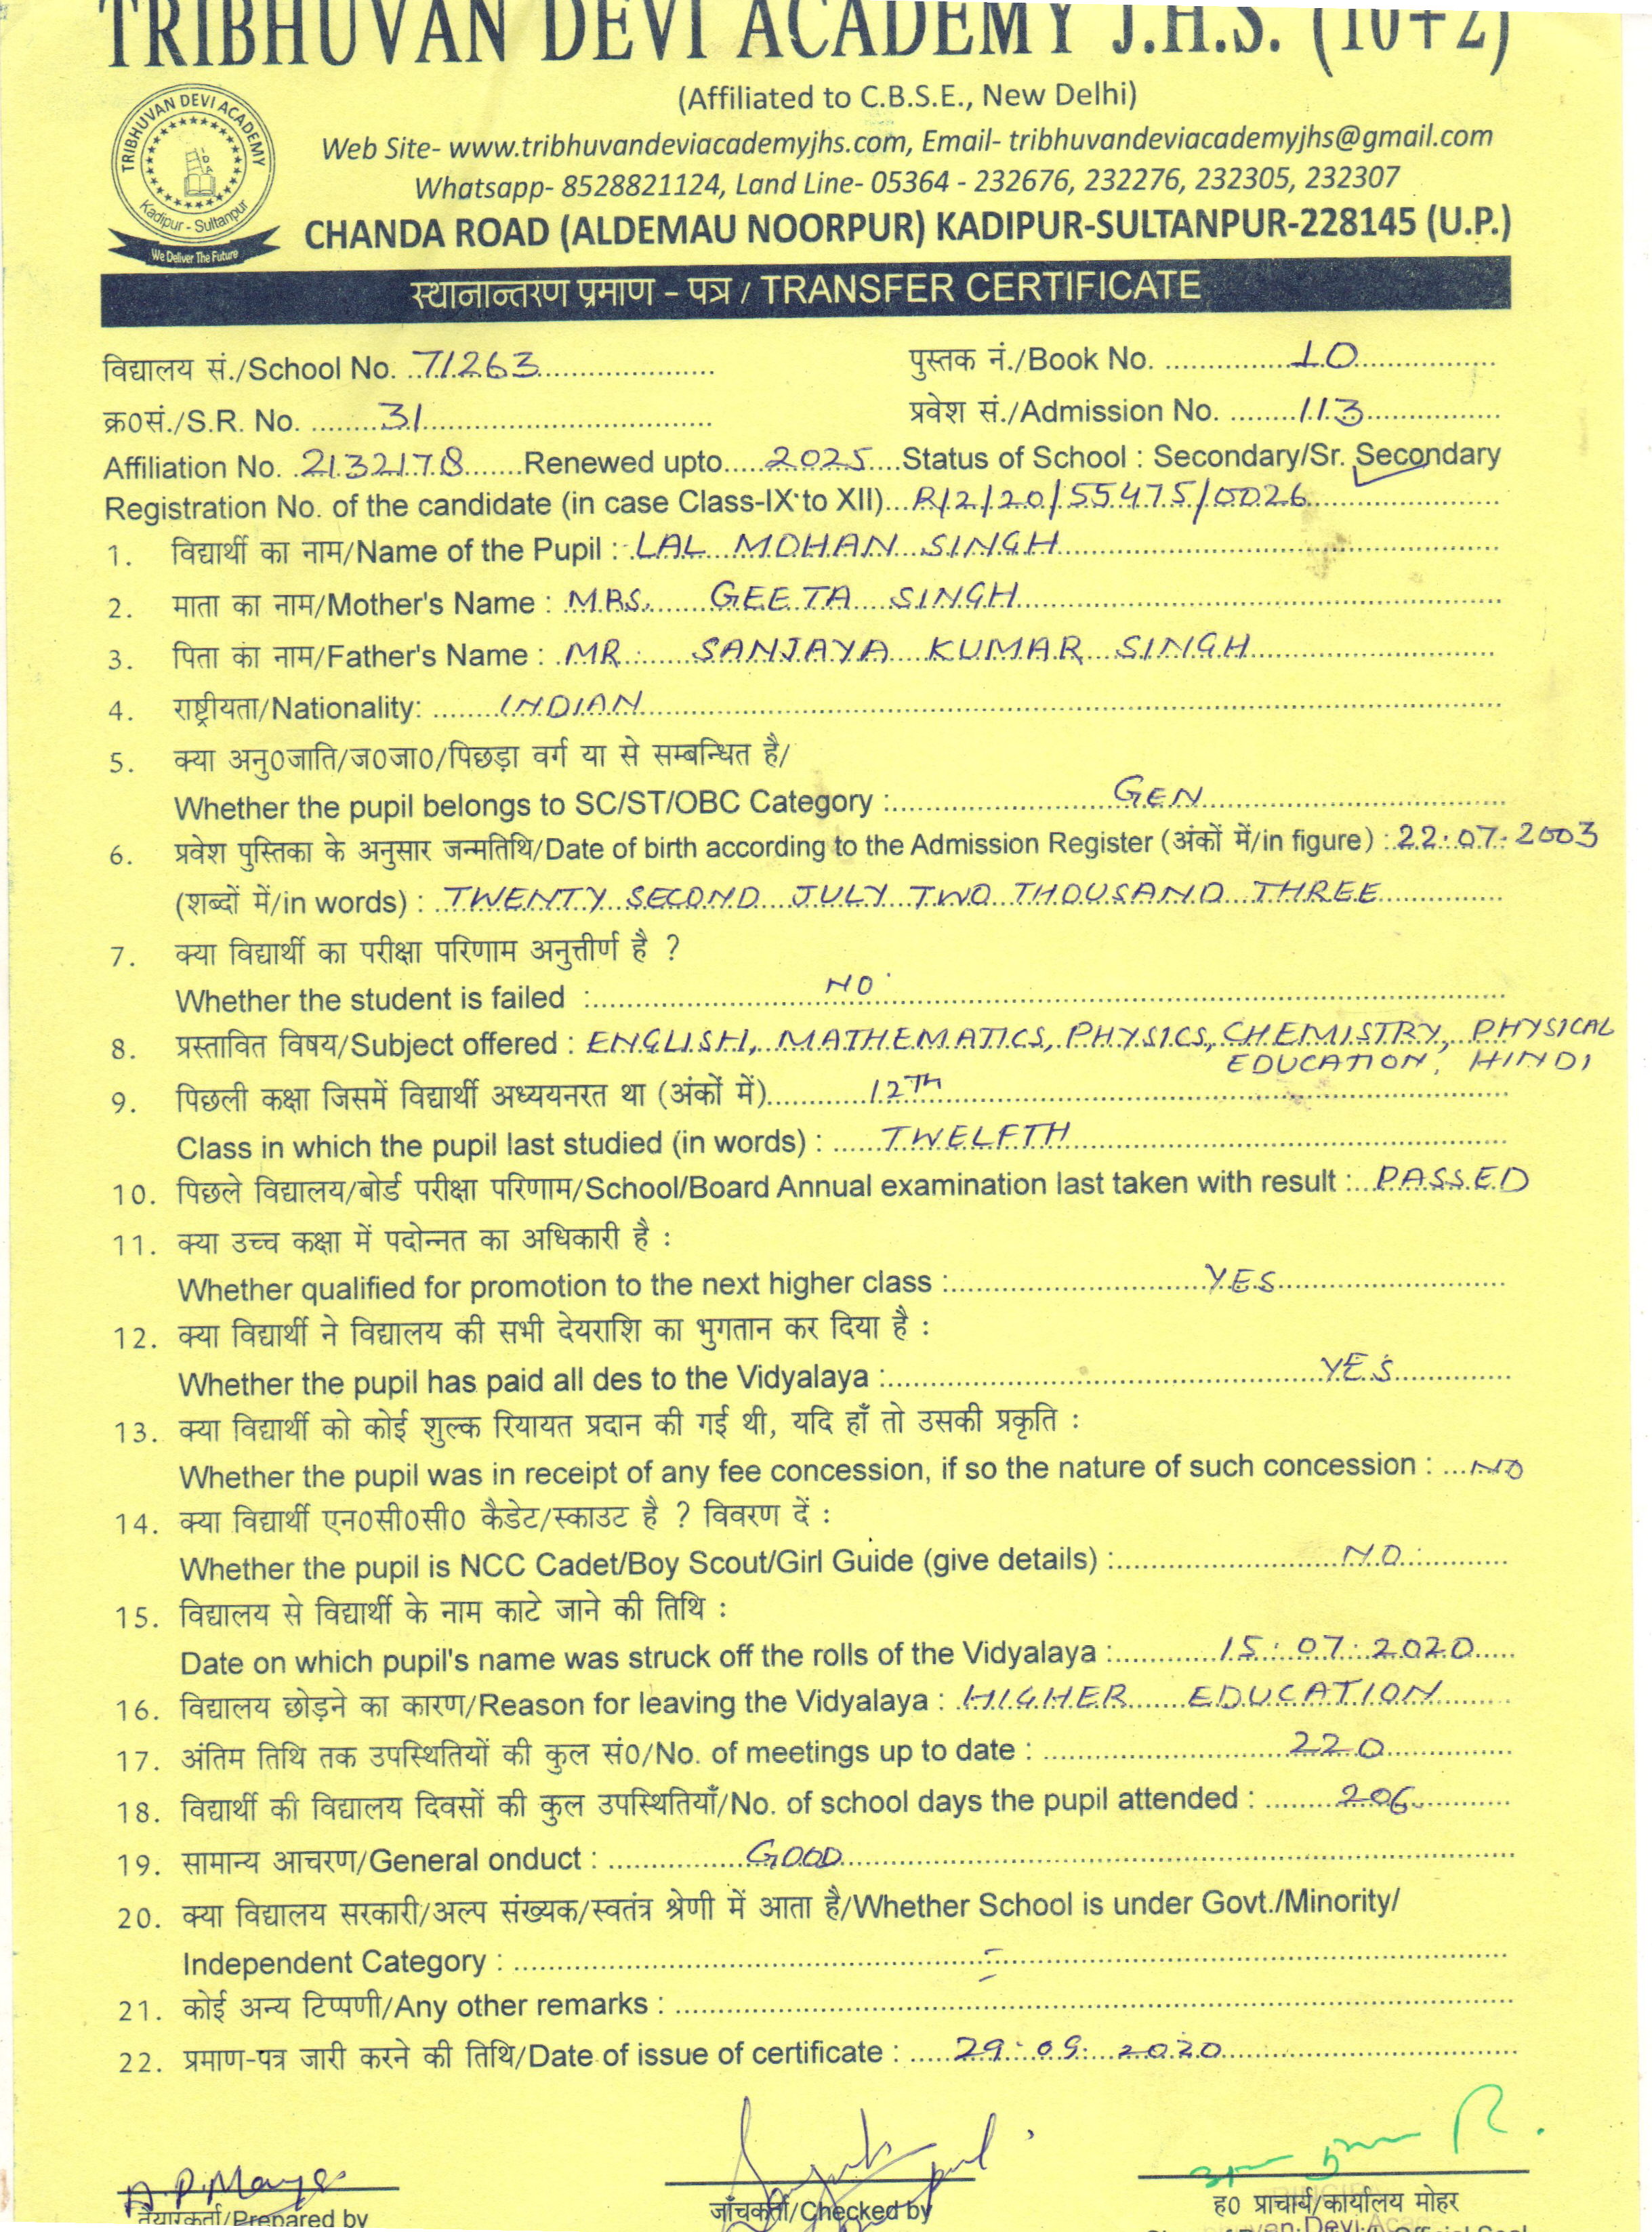 TRIBHUVAN DEVI ACADEMY J.H.S. (10+2)
(Affiliated to C.B.S.E., New Delhi)
Web Site- www.tribhuvandeviacademyjhs.com, Email- tribhuvandeviacademyjhs@gmail.com
Whatsapp- 8528821124, Land Line- 05364 - 232676, 232276, 232305, 232307
CHANDA ROAD (ALDEMAU NOORPUR) KADIPUR-SULTANPUR-228145 (U.P.)
TRIBHUVAN DEVI ACADEMY
Kadipur - Sultanpur
We Deliver The Future
स्थानान्तरण प्रमाण - पत्र / TRANSFER CERTIFICATE
विद्यालय सं./School No. 71263 पुस्तक नं./Book No. 10
क्र०सं./S.R. No. 31 प्रवेश सं./Admission No. 113
Affiliation No. 2132178 Renewed upto 2025 Status of School : Secondary/Sr. Secondary
Registration No. of the candidate (in case Class-IX to XII) R/2/20/55475/0026
1. विद्यार्थी का नाम/Name of the Pupil : LAL MOHAN SINGH
2. माता का नाम/Mother's Name : MRS. GEETA SINGH
3. पिता का नाम/Father's Name : MR. SANJAYA KUMAR SINGH
4. राष्ट्रीयता/Nationality: INDIAN
5. क्या अनु०जाति/ज०जा०/पिछड़ा वर्ग या से सम्बन्धित है/
Whether the pupil belongs to SC/ST/OBC Category : GEN
6. प्रवेश पुस्तिका के अनुसार जन्मतिथि/Date of birth according to the Admission Register (अंकों में/in figure) : 22.07.2003
(शब्दों में/in words) : TWENTY SECOND JULY TWO THOUSAND THREE
7. क्या विद्यार्थी का परीक्षा परिणाम अनुत्तीर्ण है ?
Whether the student is failed : NO
8. प्रस्तावित विषय/Subject offered : ENGLISH, MATHEMATICS, PHYSICS, CHEMISTRY, PHYSICAL
EDUCATION, HINDI
9. पिछली कक्षा जिसमें विद्यार्थी अध्ययनरत था (अंकों में) 12TH
Class in which the pupil last studied (in words) : TWELFTH
10. पिछले विद्यालय/बोर्ड परीक्षा परिणाम/School/Board Annual examination last taken with result : PASSED
11. क्या उच्च कक्षा में पदोन्नत का अधिकारी है :
Whether qualified for promotion to the next higher class : YES
12. क्या विद्यार्थी ने विद्यालय की सभी देयराशि का भुगतान कर दिया है :
Whether the pupil has paid all des to the Vidyalaya : YES
13. क्या विद्यार्थी को कोई शुल्क रियायत प्रदान की गई थी, यदि हाँ तो उसकी प्रकृति :
Whether the pupil was in receipt of any fee concession, if so the nature of such concession : NO
14. क्या विद्यार्थी एन०सी०सी० कैडेट/स्काउट है ? विवरण दें :
Whether the pupil is NCC Cadet/Boy Scout/Girl Guide (give details) : NO
15. विद्यालय से विद्यार्थी के नाम काटे जाने की तिथि :
Date on which pupil's name was struck off the rolls of the Vidyalaya : 15.07.2020
16. विद्यालय छोड़ने का कारण/Reason for leaving the Vidyalaya : HIGHER EDUCATION
17. अंतिम तिथि तक उपस्थितियों की कुल सं०/No. of meetings up to date : 220
18. विद्यार्थी की विद्यालय दिवसों की कुल उपस्थितियाँ/No. of school days the pupil attended : 206
19. सामान्य आचरण/General onduct : GOOD
20. क्या विद्यालय सरकारी/अल्प संख्यक/स्वतंत्र श्रेणी में आता है/Whether School is under Govt./Minority/
Independent Category :
21. कोई अन्य टिप्पणी/Any other remarks :
22. प्रमाण-पत्र जारी करने की तिथि/Date of issue of certificate : 29.09.2020
तैयारकर्ता/Prepared by जाँचकर्ता/Checked by ह० प्राचार्य/कार्यालय मोहर